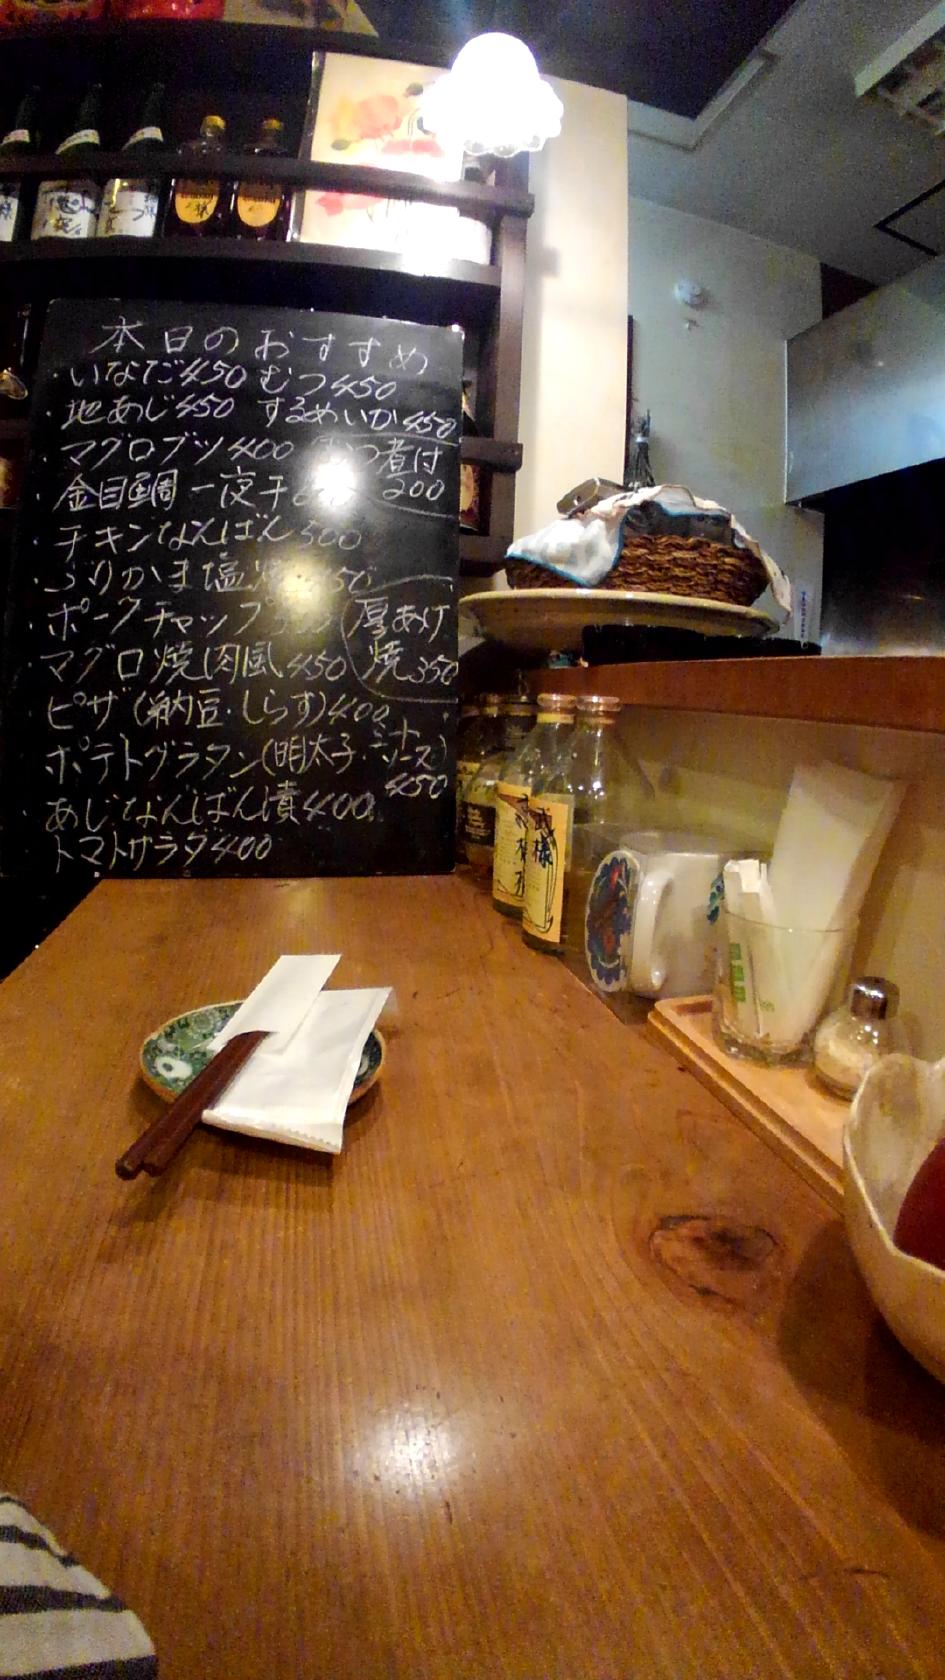 本日のおすすめ
・いなだ450 むつ450
・地あじ450 するめいか450
・マグロブツ400 つ煮付 200
・金目鯛一夜干
・チキンなんばん500
・ぶりかま塩 450
・ポークチャップ
厚あげ焼350
・マグロ焼肉風450
・ピザ(納豆・しらす)400
・ポテトグラタン(明太子・ミートソース)450
・あじなんばん漬400
・トマトサラダ400